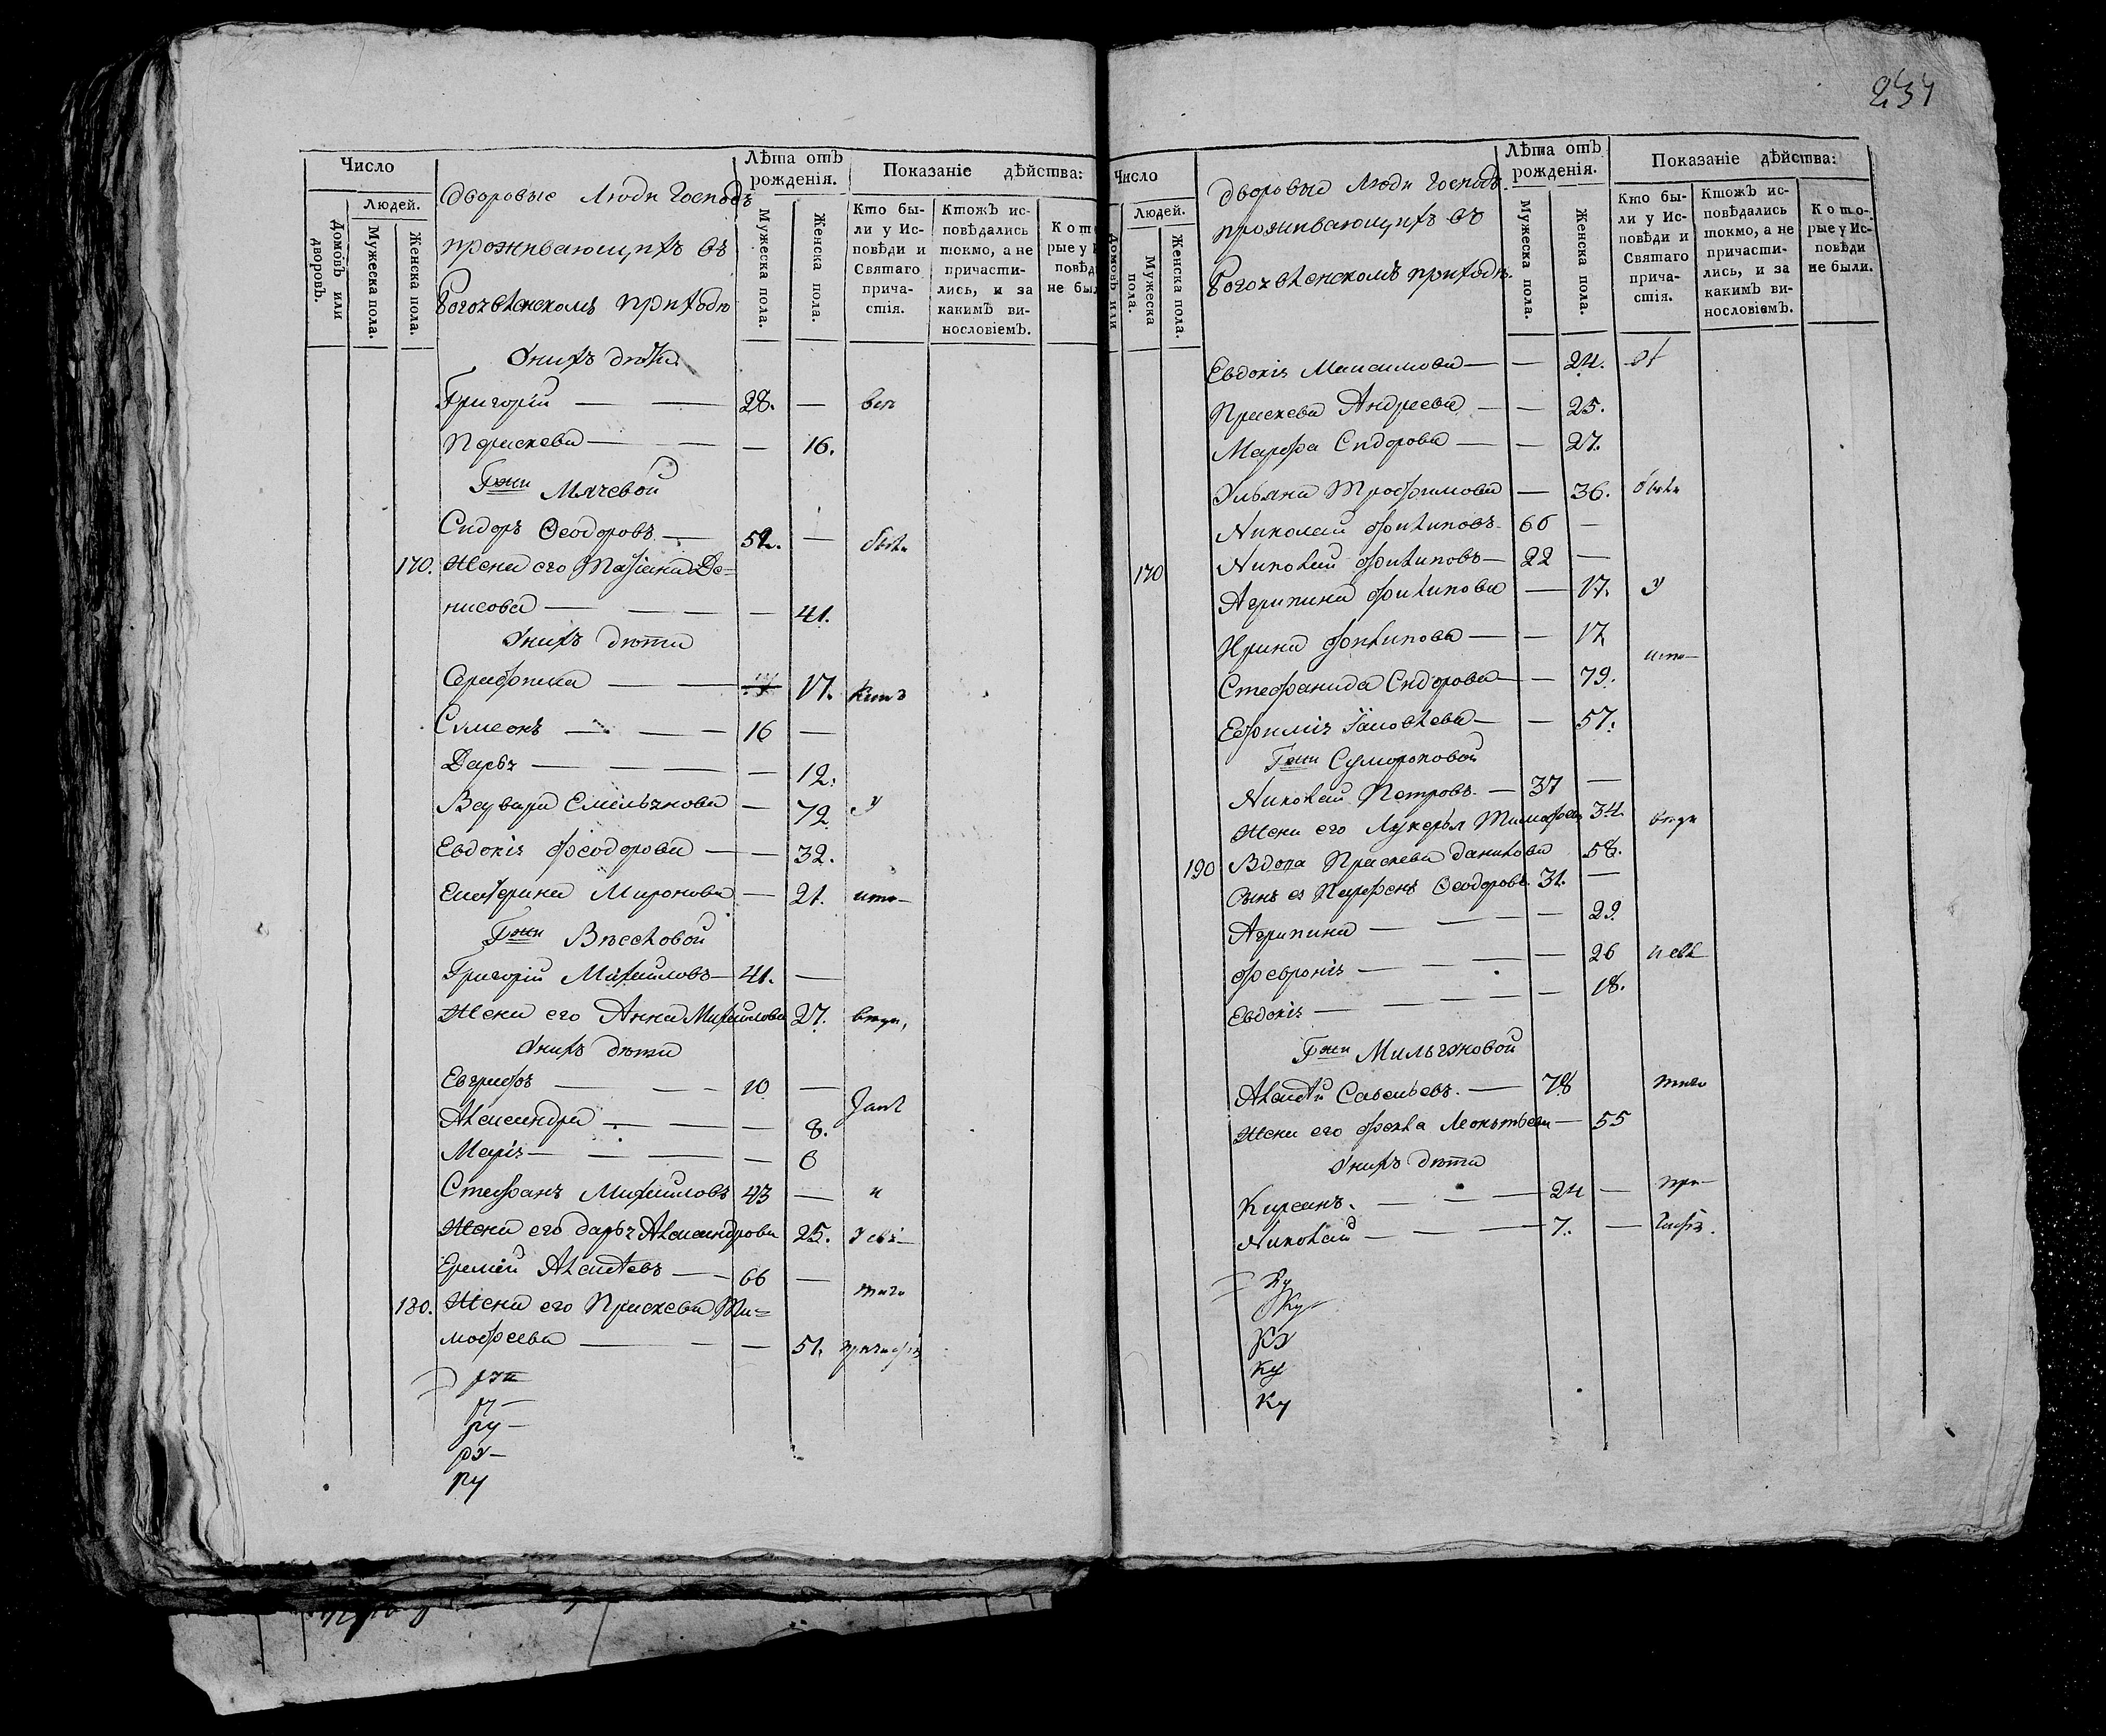 Число
Людей.
Домовъ или дворовъ.
Мужеска пола.
Женска пола.
Дворовые Люди Господъ
проживающихъ въ
Богоявленскомъ приходѣ
Лѣта отъ рожденія.
Мужеска пола.
Женска пола.
Показаніе дѣйства:
Кто бы-
ли у Ис-
повѣди и
Святаго
прича-
стія.
Ктожъ ис-
повѣдались
токмо, а не
причасти-
лись, и за
какимъ ви-
нословіемъ.
Кото
рые у
повѣд
не был
У нихъ дѣти
Григорій — — 28. — вси
Параскева — — — 16.
Гжи Мячевой
Сидоръ Ѳеодоровъ — 52. — были
170. Жена его Татіана Де=
нисова — — — — 41.
У нихъ дѣти
Серафима — — 17.
Сѵмеонъ — — — 16 —
Дарья — — — — 12.
Варвара Емельянова — 72 у
Евдокія Феодорова — — 32.
Екатерина Миронова — 21.
Гжи Вѣсловой
Григорій Михайловъ — 41. —
Жена его Анна Михайлова 27.
У нихъ дѣти
Евграфъ — — — 10 —
Александра — — — 8.
Марія — — — — 6
Стефанъ Михайловъ 43 — и
Жена его Дарья Александрова 25.
Еремей Алексѣевъ — 66 —
180. Жена его Праскева Ти=
мофеева — — — 51.
234
Число
Людей.
Домовъ или
Мужеска пола.
Женска пола.
Дворовые Люди Господъ
проживающихъ въ
Богоявленскомъ приходѣ
Лѣта отъ рожденія.
Мужеска пола.
Женска пола.
Показаніе дѣйства:
Кто бы-
ли у Ис-
повѣди и
Святаго
прича-
стія.
Ктожъ ис-
повѣдались
токмо, а не
причасти-
лись, и за
какимъ ви-
нословіемъ.
Кото-
рые у Ис-
повѣди
не были.
Евдокія Максимова — — 24.
Праскева Андреева — — 25.
Марфа Сидорова — — 27.
Ульяна Трофимова — 36. были
Николай Филиповъ 66 —
170 Николай Филиповъ — 22 —
Агрипина Филипова — 17. У
Ирина Филипова — — 17
Стефанида Сидорова — — 79.
Ефимія Іаковлева — — 57.
Гжи Сумороковой
Николай Петровъ — 37 —
Жена его Лукерья Тимофеева 34.
190 Вдова Праскева Данилова 58.
Сынъ ея Парфенъ Ѳеодоровъ 31. —
Агрипина — — — 29.
Феврония — — — 26
Евдокія — — — — 18.
Гжи Мильяновой
Алексѣй Савельевъ. — 78
Жена его Фекла Леонтьева — 55
У нихъ дѣти
Кирсанъ. — — — 24 — при—
Николай — — — 7. —